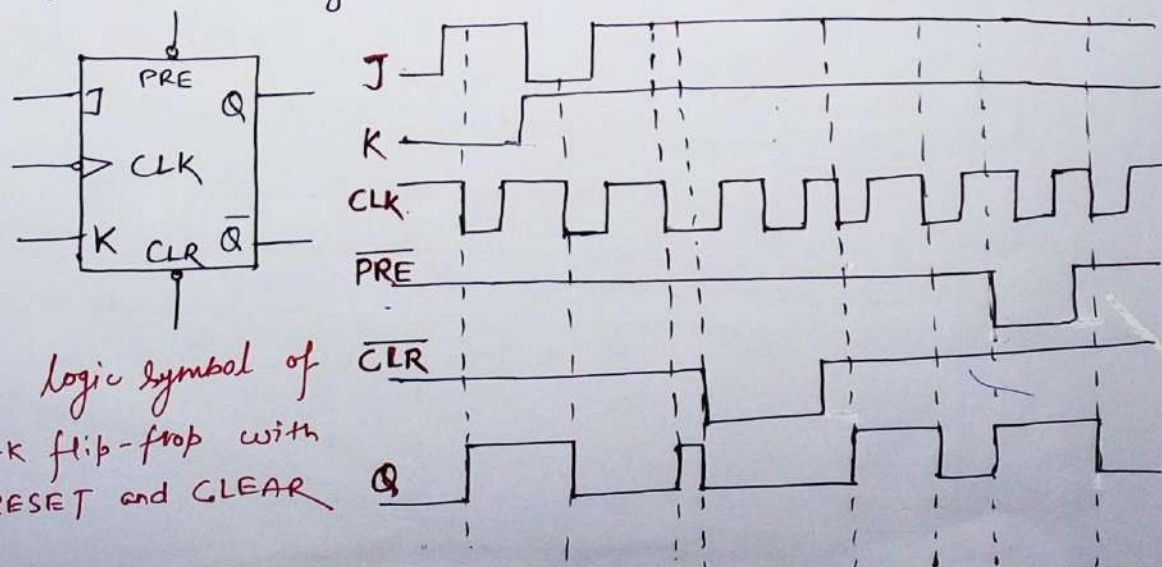 PRE
J
Q
CLK
K
CLR
Q̅
logic symbol of
-K flip-frop with
RESET and CLEAR
J
K
CLK
P̅R̅E̅
C̅L̅R̅
Q